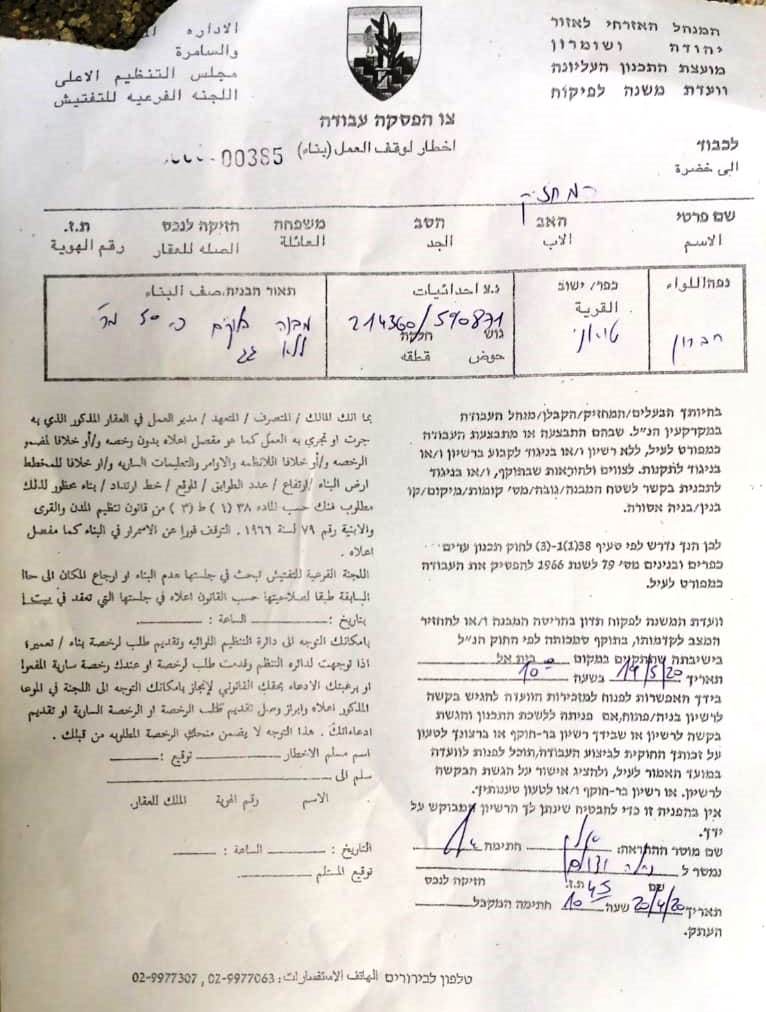 המנהל האזרחי לאזור
יהודה ושומרון
מועצת התכנון העליונה
וועדת משנה לפיקוח
الاداره
والسامرة
مجلس التنظيم الاعلى
اللجنه الفرعيه للتفتيش
צו הפסקה עבודה
اخطار لوقف العمل (بناء)
00385
לכבוד
الى خضرة
המחזיק
שם פרטי האב הסב משפחה חזיקה לנכס ת.ז.
الاسم الاب الجد العائلة الصله للعقار رقم الهوية
נפה/اللواء כפר/ ישוב נ.צ احداثيات תאור הבניה/صف البناء
القرية
חברון טואני 214360/590871 מבנה בלוקים כ- 50 מ"ר
ללא גג
גוש חלקה
حوض قطقه
בהיותך הבעלים/המחזיק/הקבלן/מנהל העבודה
במקרקעין הנ"ל. שבהם התבצעה או מתבצעת העבודה
כמפורט לעיל, ללא רשיון ו/או בניגוד לקבוע ברשיון ו/או
בניגוד לתקנות. לצווים ולהוראות שבתוקף, ו/או בניגוד
לתכנית בקשר לשטח המבנה/גובה/מס' קומות/מיקום/קו
בנין/בניה אסורה.
לכן הנך נדרש לפי סעיף 38(1)-(3) לחוק תכנון ערים
כפרים ובנינים מס' 79 לשנת 1966 להפסיק את העבודה
כמפורט לעיל.
וועדת המשנה לפקוח תדון בהריסת המבנה ו/או להחזיר
המצב לקדמותו, בתוקף סמכותה לפי החוק הנ"ל
בישיבתה שתתקיים במקום בית אל
תאריך 14/5/20 בשעה 10
בידך האפשרות לפנות למזכירות הוועדה להגיש בקשה
לרשיון בניה/פתוח, אם פניתה ללשכת התכנון והגשת
בקשה לרשיון או שבידך רשיון בר-חוקף או ברצונך לטעון
על זכותך החוקית לביצוע העבודה, תוכל לפנות לוועדה
במועד האמור לעיל, ולהציג אישור על הגשת הבקשה
לרשיון. או רשיון בר-חוקף ו/או לטעון טענותיך.
אין בהפניה זו כדי להבטיח שינתן לך הרשיון המבוקש על
ידך.
שם מוסר ההתראה: חתימה
נמסר ל
שם ת.ז. חזיקה לנכס
תאריך 20/4/20 שעה 10 45 חתימה המקבל
העתק.
بما انك المالك / المتصرف / المتعهد / مدير العمل في العقار المذكور الذي به
جرت او تجري به العمل كما هو مفصل اعلاه بدون رخصه و/أو خلافا لمضمو
الرخصه و/أو خلافا اللانظمه والاوامر والتعليمات الساريه و/او خلافا للمخطط
ارض البناء /ارتفاع / عدد الطوابق / الموقع / خط ارتداد / بناء محظور لذلك
مطلوب منك حسب الماده ٣٨ (١ ) ط (٣ ) من قانون تنظيم المدن والقرى
والابنية رقم ٧٩ لسنة ١٩٦٦ . التوقف فورا عن الاستمرار في البناء كما مفصل
اعلاه .
اللجنة الفرعية للتفتيش تبحث في جلستها هدم البناء او ارجاع المكان الى حالا
السابقة طبقا لصلاحيتها حسب القانون اعلاه في جلستها التي تعقد في بيت ا
بتاريخ : الساعة :
بامكانك التوجه الى دائرة التنظيم اللوائيه وتقديم طلب لرخصة بناء / تعمير؛
اذا توجهت لدائره التنظم وقدمت طلب لرخصة او عندك رخصة سارية المفعوا
او برغبتك الادعاء بحقك القانوني لإنجاز بامكانك التوجه الى اللجنة في الموعد
المذكور اعلاه وابراز وصل تقديم طلب الرخصة او الرخصة السارية او تقديم
ادعاءاتك . هذا التوجه لا يضمن منحك الرخصة المطلوبه من قبلك .
اسم مسلم الاخطار توقيع :
سلم الى
الاسم رقم الهوية الملك للعقار.
التاريخ : الساعة :
توقيع المستلم
טלפון לבירורים الهاتف الاستفسارات: 02-9977063 , 02-9977307